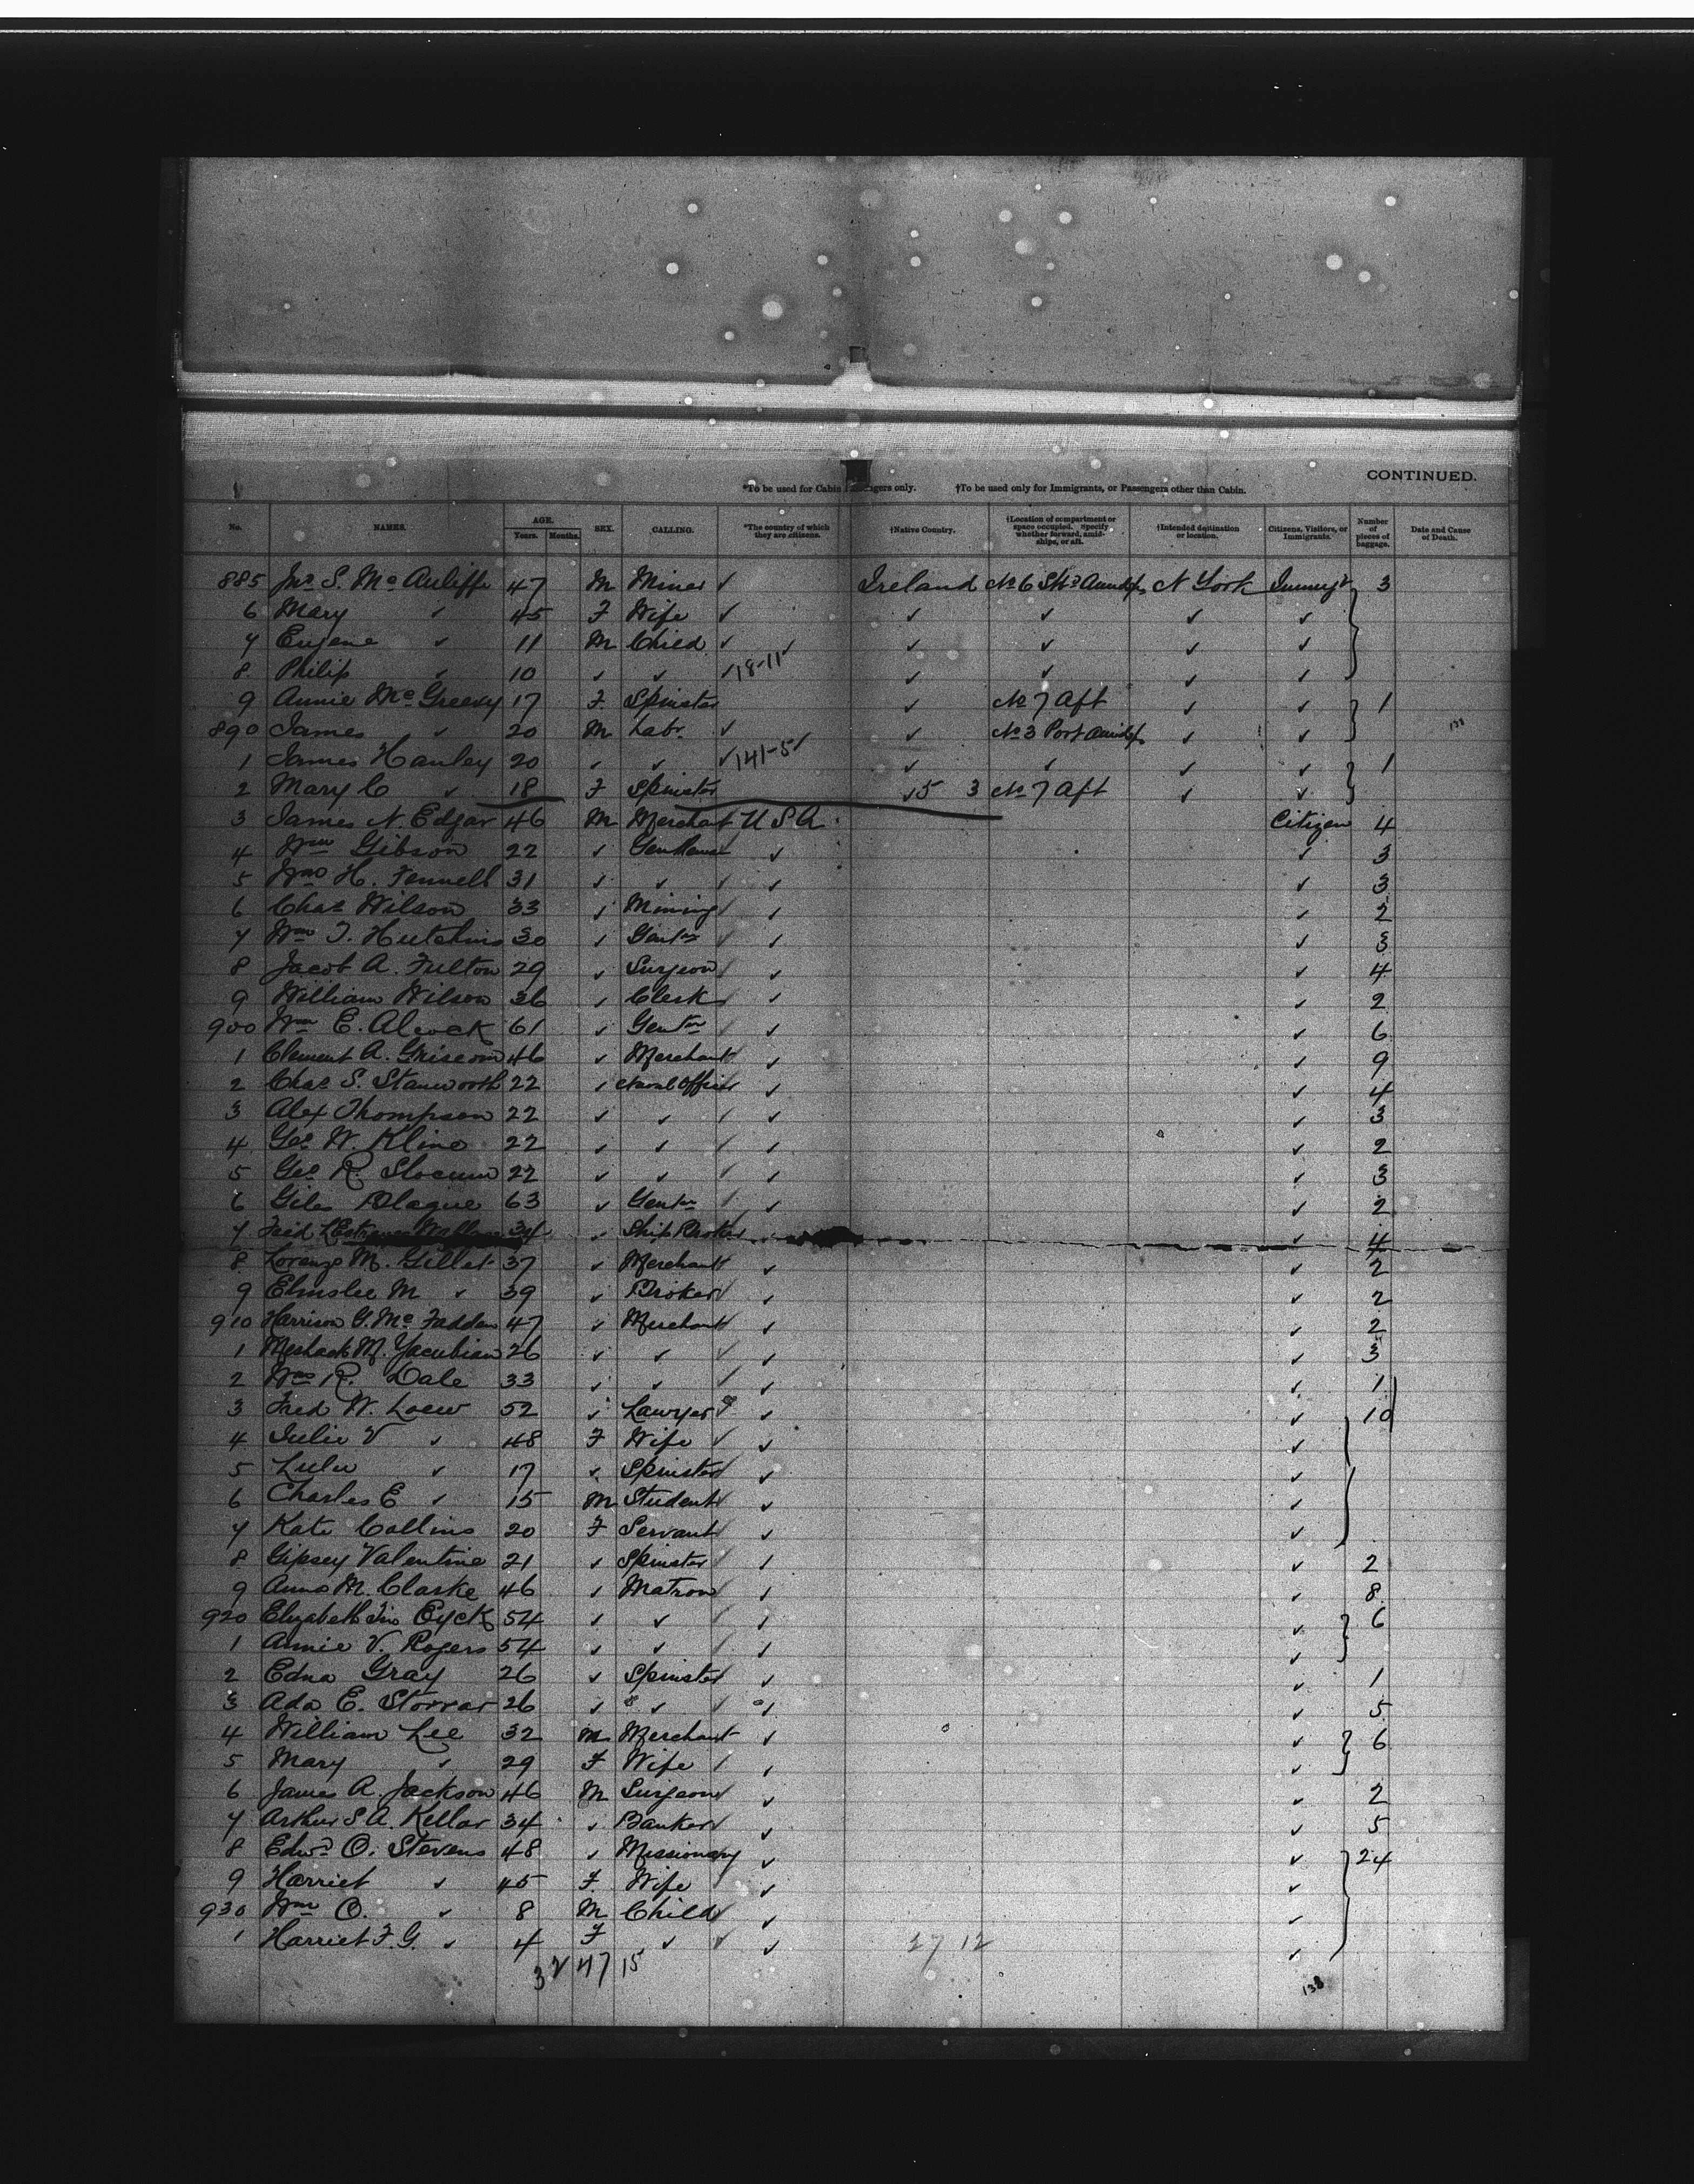 CONTINUED.
*To be used for Cabin Passengers only. †To be used only for Immigrants, or Passengers other than Cabin.
No. NAMES. AGE. Years. Months. SEX. CALLING. *The country of which they are citizens. †Native Country. †Location of compartment or space occupied. Specify whether forward, amidships, or aft. †Intended destination or location. Citizens, Visitors, or Immigrants. Number of pieces of baggage. Date and Cause of Death.
885 Jno S. McAuliffe 47 M Miner ✓ Ireland No 6 N York 3
6 Mary ✓ 45 F Wife ✓ ✓ ✓ ✓ ✓
7 Eugene ✓ 11 M Child ✓ ✓ ✓ ✓ ✓
8 Philip ✓ 10 ✓ ✓ ✓ 18-11 ✓ ✓ ✓ ✓ ✓
9 Annie McGreevy 17 F Spinster ✓ No 7 Aft ✓ ✓ 1
890 James ✓ 20 M Labr ✓ ✓ No 3 Port Amidsps ✓ ✓
1 James Hanley 20 ✓ ✓ ✓ 141-5 ✓ ✓ ✓ ✓ ✓ 1
2 Mary C ✓ 18 F Spinster ✓ 5 3 No 7 Aft ✓ ✓
3 James N. Edgar 46 M Merchat U S A Citizen 4
4 Wm Gibson 22 ✓ Gentleman ✓ ✓ 3
5 Wm H. Fennell 31 ✓ ✓ ✓ ✓ ✓ 3
6 Chas Wilson 33 ✓ Mining ✓ ✓ ✓ 2
7 Wm T. Hutchins 30 ✓ Gentn ✓ ✓ 3
8 Jacob A. Fulton 29 ✓ Surgeon ✓ ✓ ✓ 4
9 William Wilson 36 ✓ Clerk ✓ ✓ ✓ 2
900 Wm E. Alcock 61 ✓ Gentn ✓ ✓ 6
1 Clement A. Griscom 46 ✓ Merchant ✓ ✓ 9
2 Chas S. Stanworth 22 ✓ Naval Officer ✓ ✓ 4
3 Alex Thompson 22 ✓ ✓ ✓ ✓ ✓ 3
4 Geo W. Kline 22 ✓ ✓ ✓ ✓ ✓ 2
5 Geo R. Slocum 22 ✓ ✓ ✓ ✓ ✓ 3
6 Giles Blague 63 ✓ Gentn ✓ ✓ ✓ 2
7 Fred 34 ✓ Ship Broker ✓ 4
8 Lorenzo M. Gillet 37 ✓ Merchant ✓ ✓ ✓ 2
9 Elmslee M ✓ 39 ✓ Broker ✓ ✓ ✓ 2
910 Harrison G. McFadden 47 ✓ Merchant ✓ ✓ 2
1 Meshack M. Yacubian 26 ✓ ✓ ✓ ✓ ✓ 3
2 Wm R. Dale 33 ✓ ✓ ✓ ✓ ✓ 1
3 Fred W. Loew 52 ✓ Lawyer ✓ ✓ 10
4 Julie V ✓ 48 F Wife ✓ ✓ ✓
5 Lulu ✓ 17 ✓ Spinster ✓ ✓
6 Charles E ✓ 15 M Student ✓ ✓ ✓
7 Kate Collins 20 F Servant ✓ ✓ ✓
8 Gipsey Valentine 21 ✓ Spinster ✓ ✓ 2
9 Anna M. Clarke 46 ✓ Matron ✓ ✓ ✓ 8
920 Elizabeth Ten Eyck 54 ✓ ✓ ✓ ✓ ✓ 6
1 Annie V. Rogers 54 ✓ ✓ ✓ ✓ ✓
2 Edna Gray 26 ✓ Spinster ✓ ✓ ✓ 1
3 Ada E. Storrar 26 ✓ ✓ ✓ ✓ ✓ 5
4 William Lee 32 M Merchant ✓ ✓ 6
5 Mary ✓ 29 F Wife ✓ ✓ ✓
6 James A. Jackson 46 M Surgeon ✓ ✓ ✓ 2
7 Arthur S. A. Kellar 34 ✓ Banker ✓ ✓ ✓ 5
8 Edwd O. Stevens 48 ✓ Missionary ✓ ✓ 24
9 Harriet ✓ 45 F Wife ✓ ✓ ✓
930 Wm O. ✓ 8 M Child ✓ ✓ ✓
1 Harriet F. G. ✓ 4 F ✓ ✓ ✓ 27 12 ✓
32 47 15
138